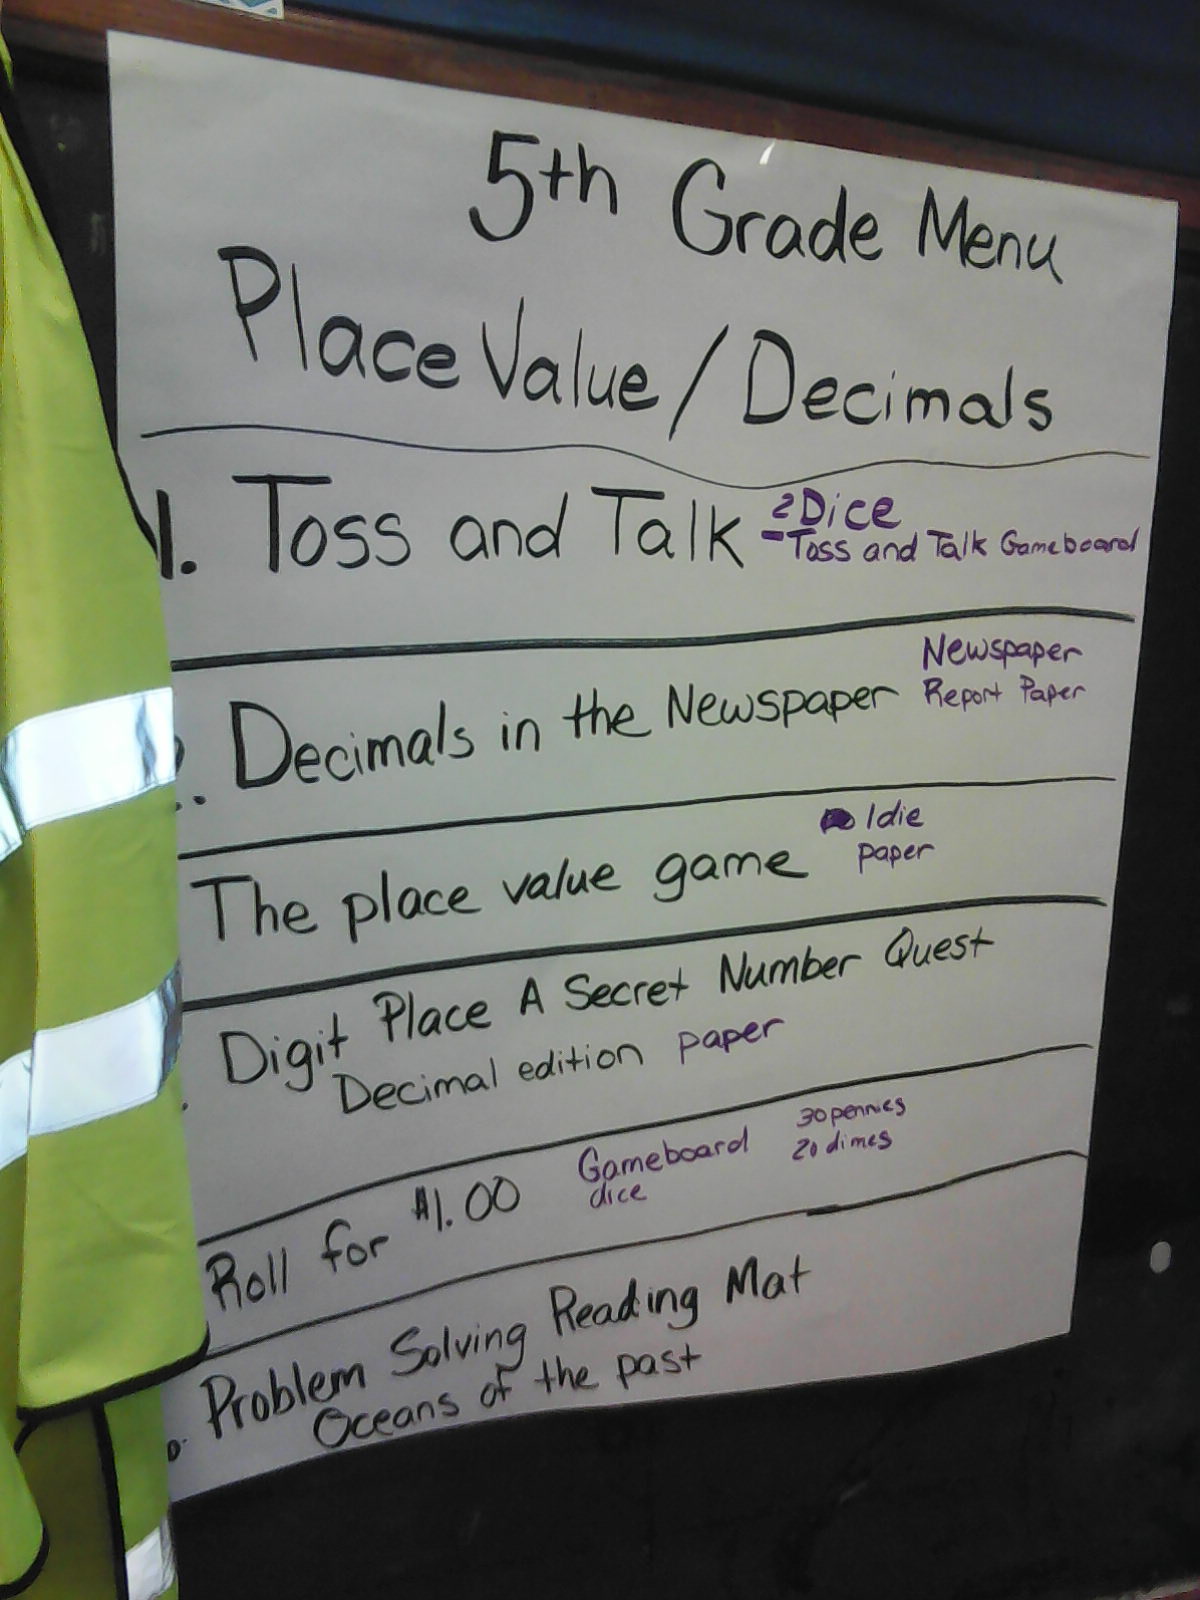 5th Grade Menu
Place Value / Decimals
1. Toss and Talk
2 Dice
- Toss and Talk Gameboard
Decimals in the Newspaper
Newspaper
Report Paper
The place value game
1 die
paper
Digit Place A Secret Number Quest
Decimal edition paper
Roll for $1.00
Gameboard
dice
30 pennies
20 dimes
Problem Solving Reading Mat
Oceans of the past